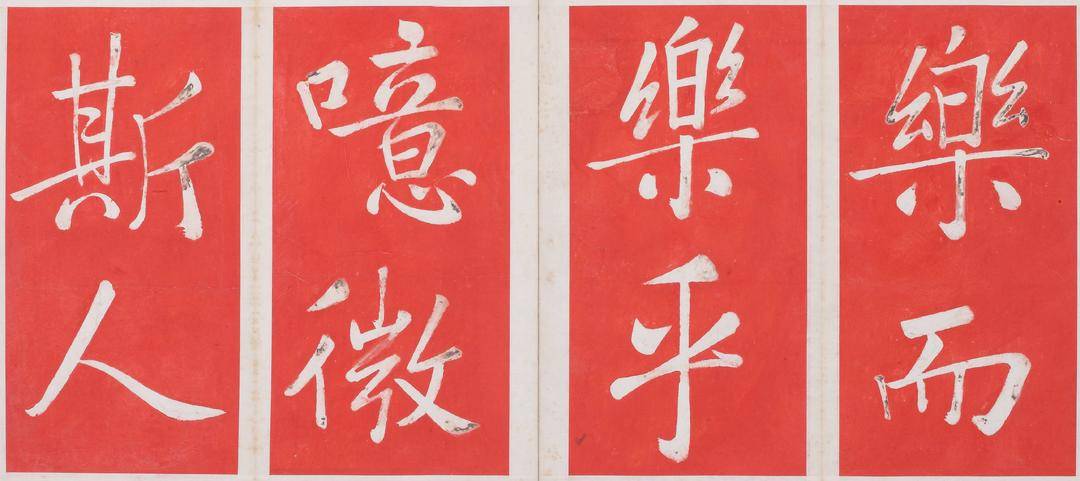 樂而
樂乎
噫微
斯人